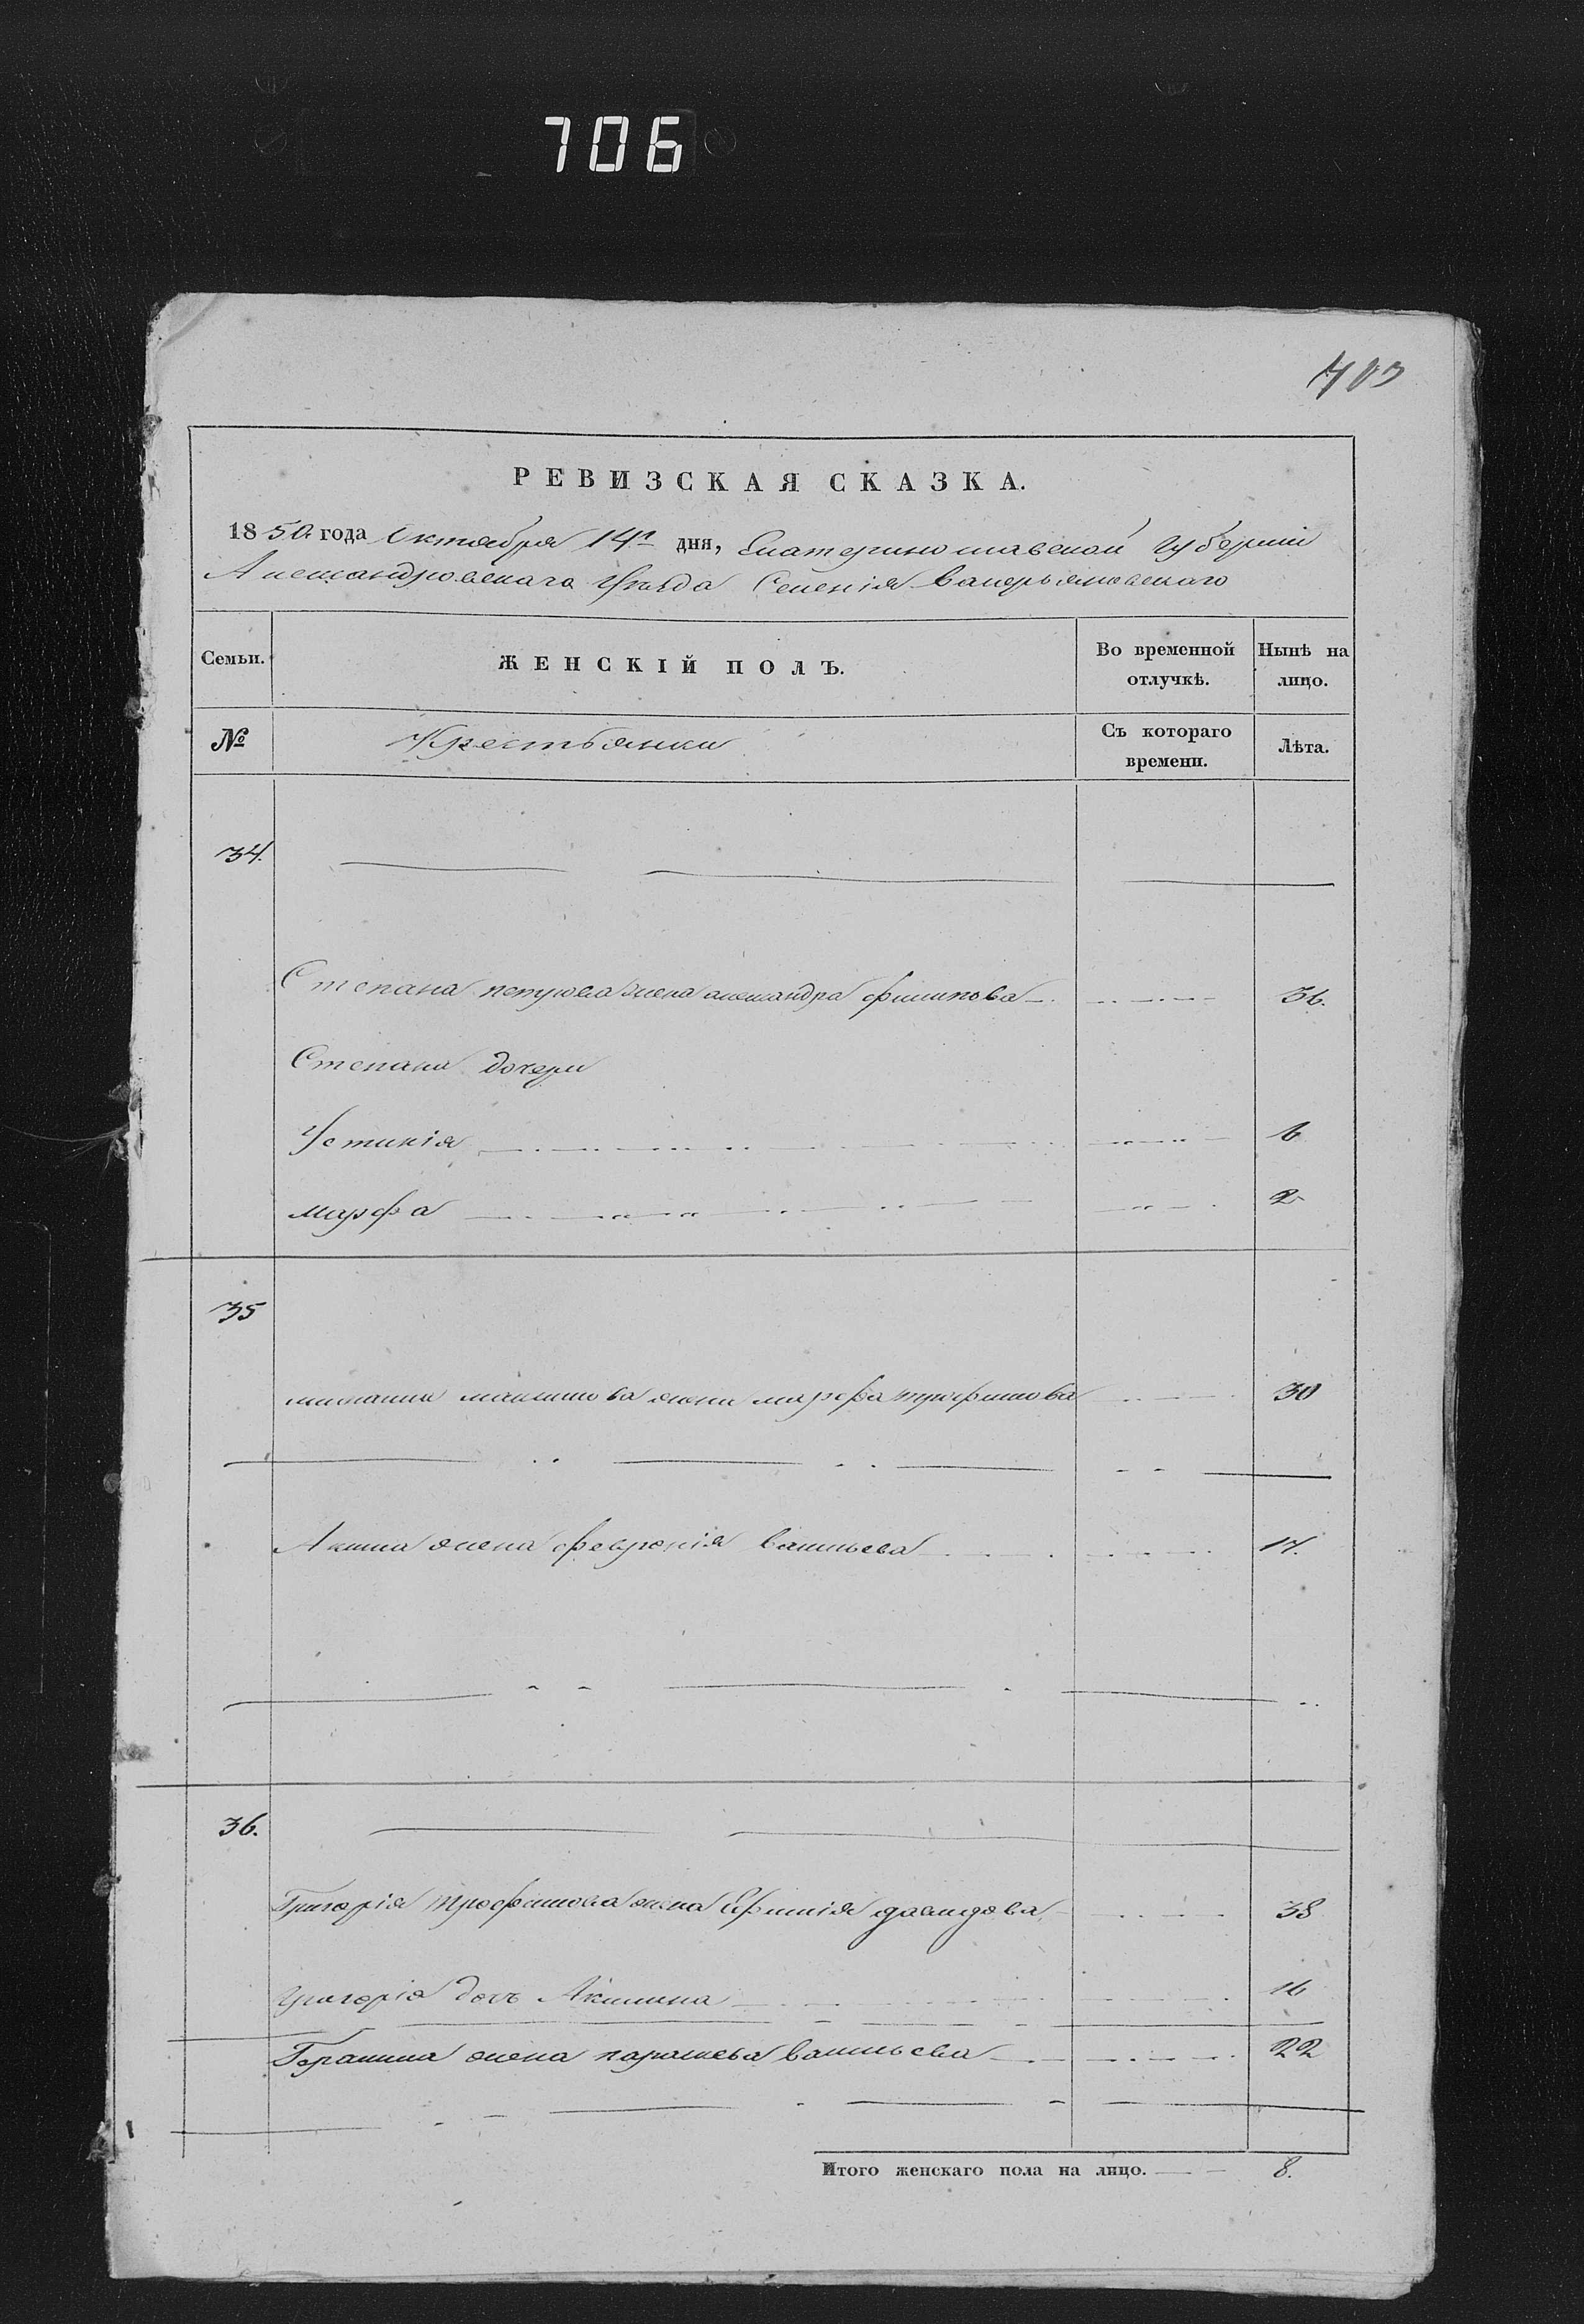 706
703
РЕВИЗСКАЯ СКАЗКА.
1850 года Октября 14го дня, Екатеринославской Губернии
Александровскаго Уѣзда Селенія Валерьяновскаго
Семьи. ЖЕНСКІЙ ПОЛЪ. Во временной отлучкѣ. Нынѣ на лицо.
№ Крестьянки Съ котораго времени. Лѣта.
34.
Степана жена александра филипова 36.
Степана дочери
Устинія 6
марфа 2
35
максимова жена марфа трофимова 30
Акима жена февронія васильева 17.
36.
Григорія трофимова жена Ефимія давидова 38
григорія дочь Акилина 16
Герасима жена парасковья васильева 22
Итого женскаго пола на лицо. 8.